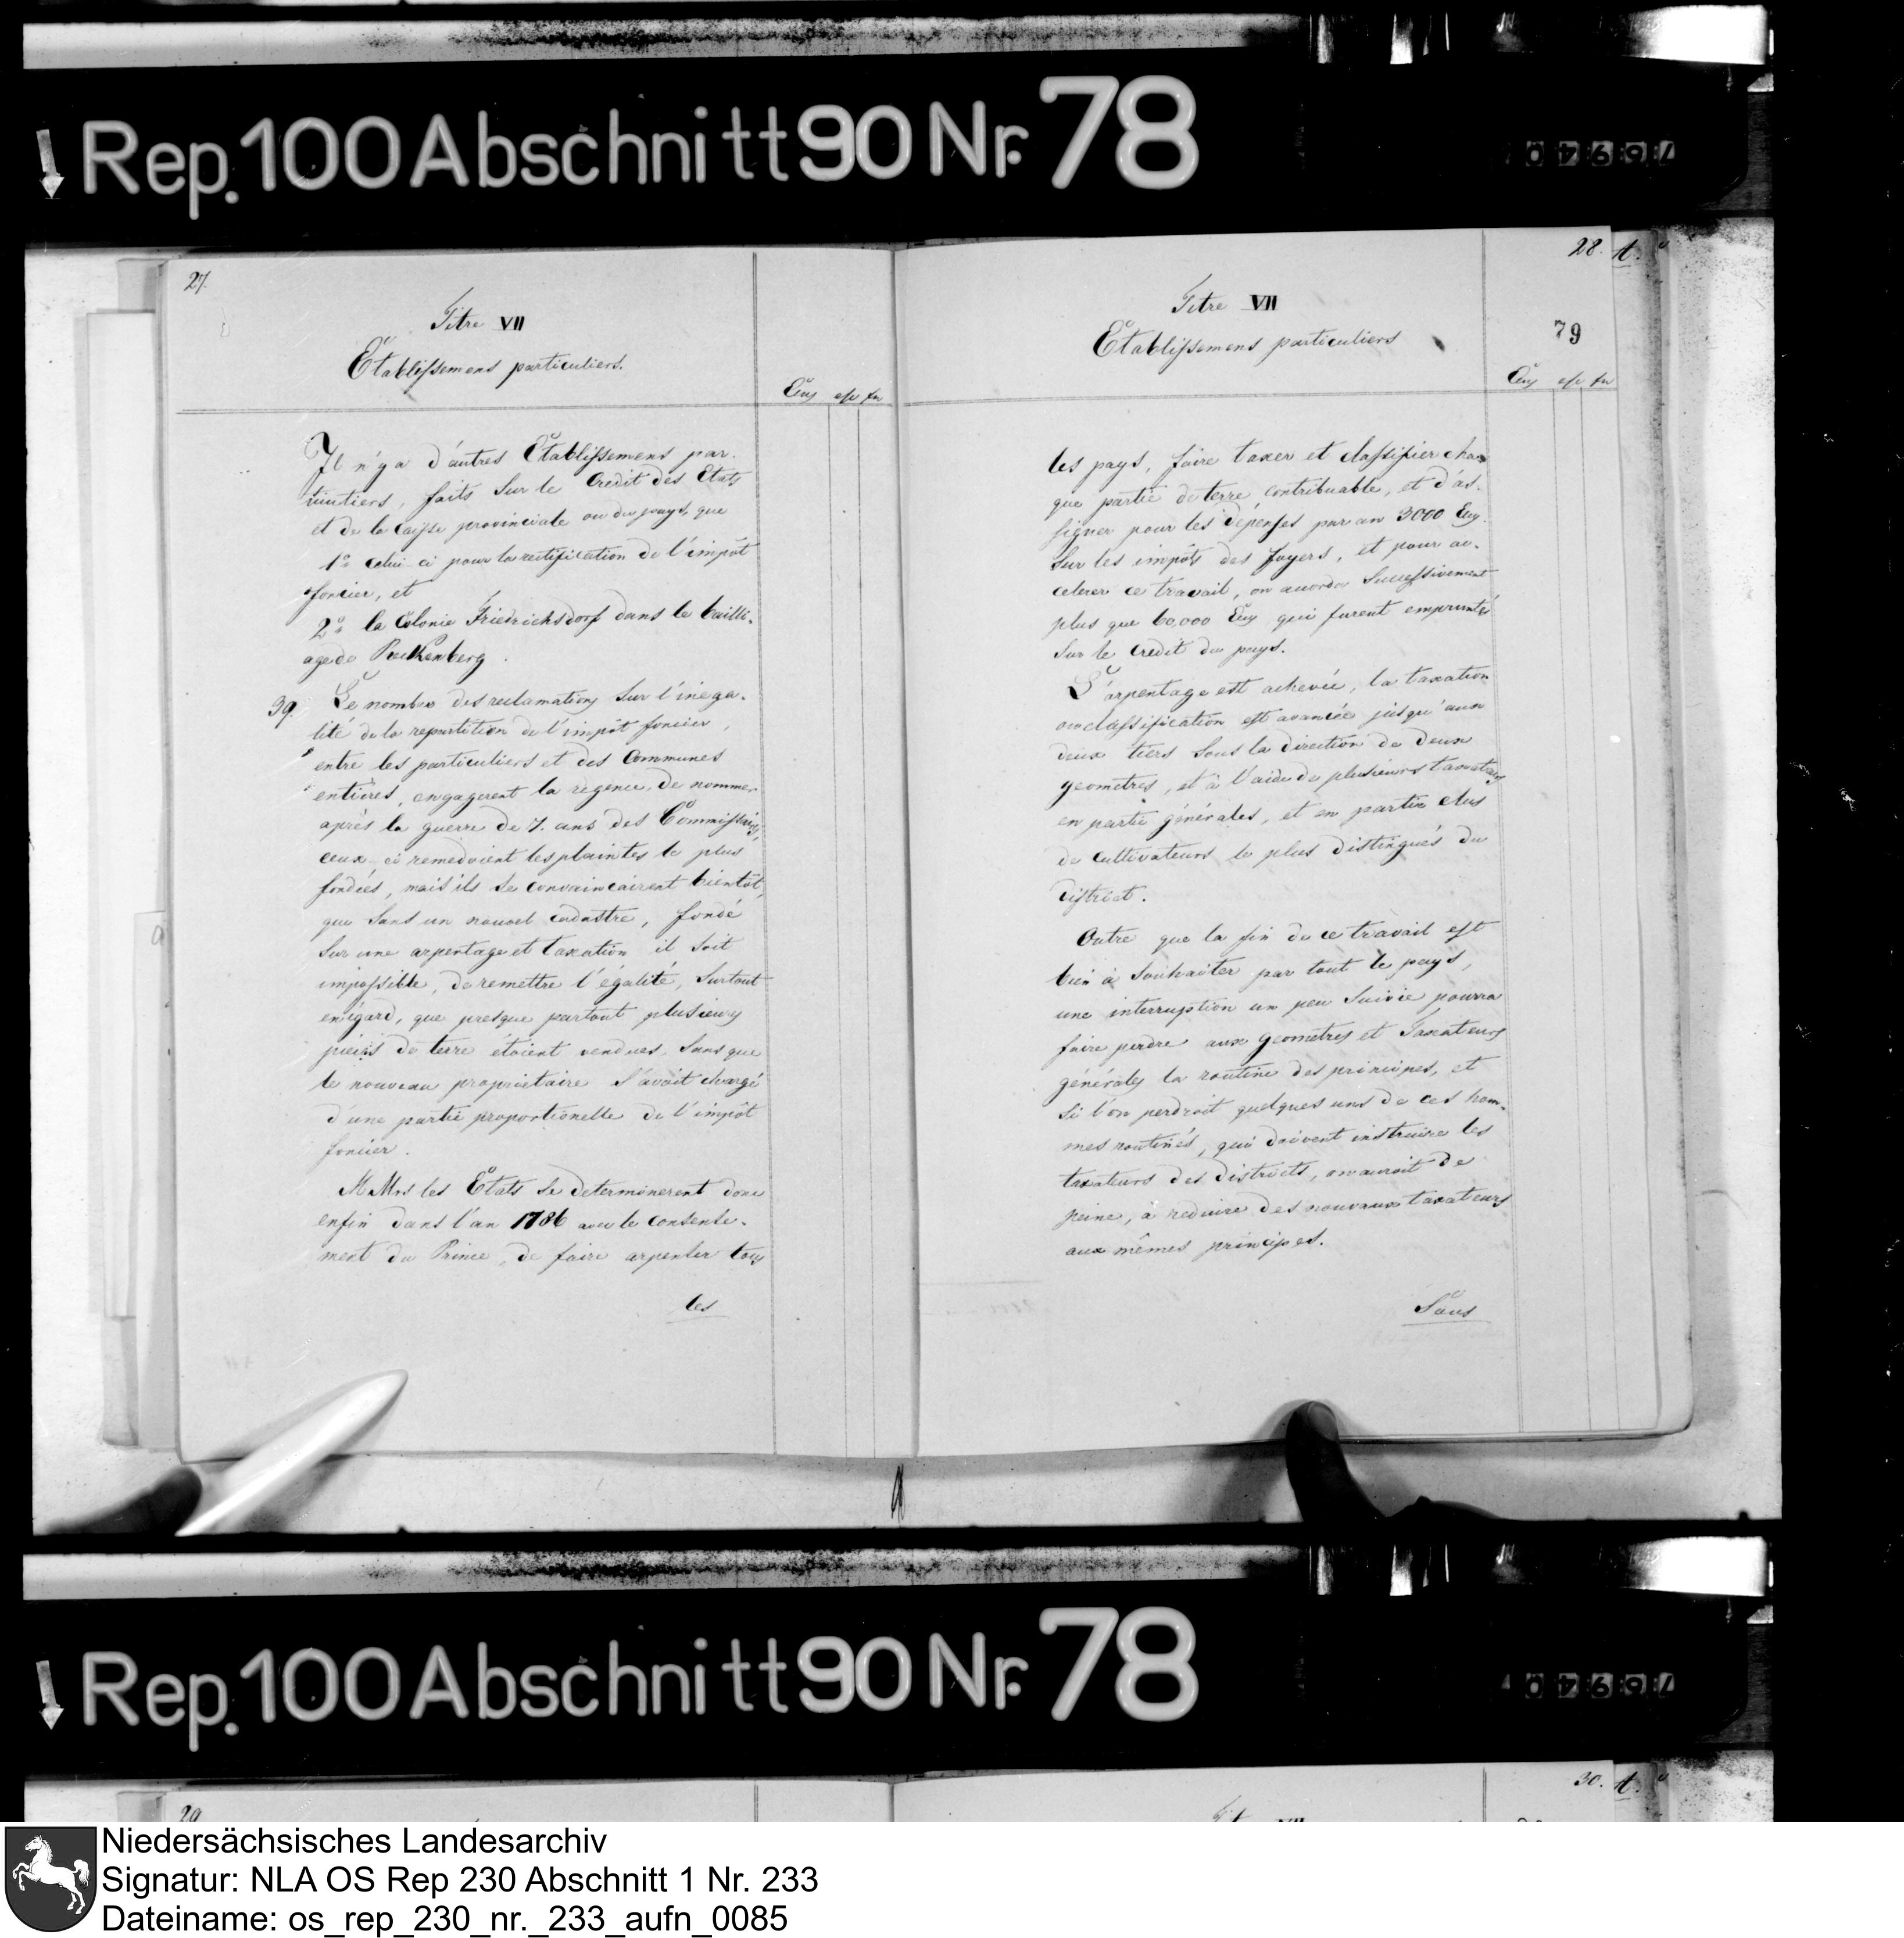 Rep. 100 Abschnitt 90 Nr. 78
27.
Titre VII
Etablissemens particuliers.
Ecus esc fn
Il n'y a d'autres Etablissemens par-
ticuliers, faits Sur le Credit des Etats
et de la Caisse provinciale ou du pays, que
1° celui-ci pour la rectification de l'impôt
foncier, et
2° la Colonie Friedrichsdorf dans le bailli-
age de Reckenberg.
39. Le nombre des reclamations Sur l'inega-
lité de la repartition de l'impôt foncier,
entre les particuliers et des Communes
entières, engagerent la regence, de nommer
après la guerre de 7. ans des Commissaires,
ceux-ci remedoient les plaintes le plus
fondées, mais ils se convaincairent bientôt,
que sans un nouvel cadastre, fondé
Sur une arpentage et taxation il soit
impossible, de remettre l'égalité, Surtout
en égard, que presque partout plusieurs
pieces de terre étoient vendues, Sans que
le nouveau proprietaire s'avoit chargé
d'une partie proportionelle de l'impôt
foncier.
MMrs les Etats se determinerent donc
enfin dans l'an 1786 avec le consente-
ment du Prince, de faire arpenter tous
les
28. A.
79
Titre VII
Etablissemens particuliers
Ecus esc fn
les pays, faire taxer et classifier cha-
que partie de terre contribuable, et d'as-
signer pour les dépenses par an 3000 Ecus
Sur les impôts des foyers, et pour ac-
celerer ce travail, on accorda Successivement
plus que 60,000 Ecus qui furent empruntés
Sur le Credit du pays.
L'arpentage est achevée, la taxation
ou classification est avancée jusqu'aux
deux tiers Sous la direction de deux
geometres, et à l'aide de plusieurs taxateurs
en partie générales, et en partie elus
de cultivateurs le plus distingués du
district.
Outre que la fin de ce travail est
bien à Souhaiter par tout le pays,
une interruption un peu Suivie pourra
faire perdre aux geometres et Taxateurs
générales la routine des principes, et
Si l'on perdroit quelques uns de ces hom-
mes routinés, qui doivent instruire les
taxateurs des districts, on auroit de
peine, à reduire des nouveaux taxateurs
aux mêmes principes.
Sans
Rep. 100 Abschnitt 90 Nr. 78
29
30. A.
Niedersächsisches Landesarchiv
Signatur: NLA OS Rep 230 Abschnitt 1 Nr. 233
Dateiname: os_rep_230_nr._233_aufn_0085